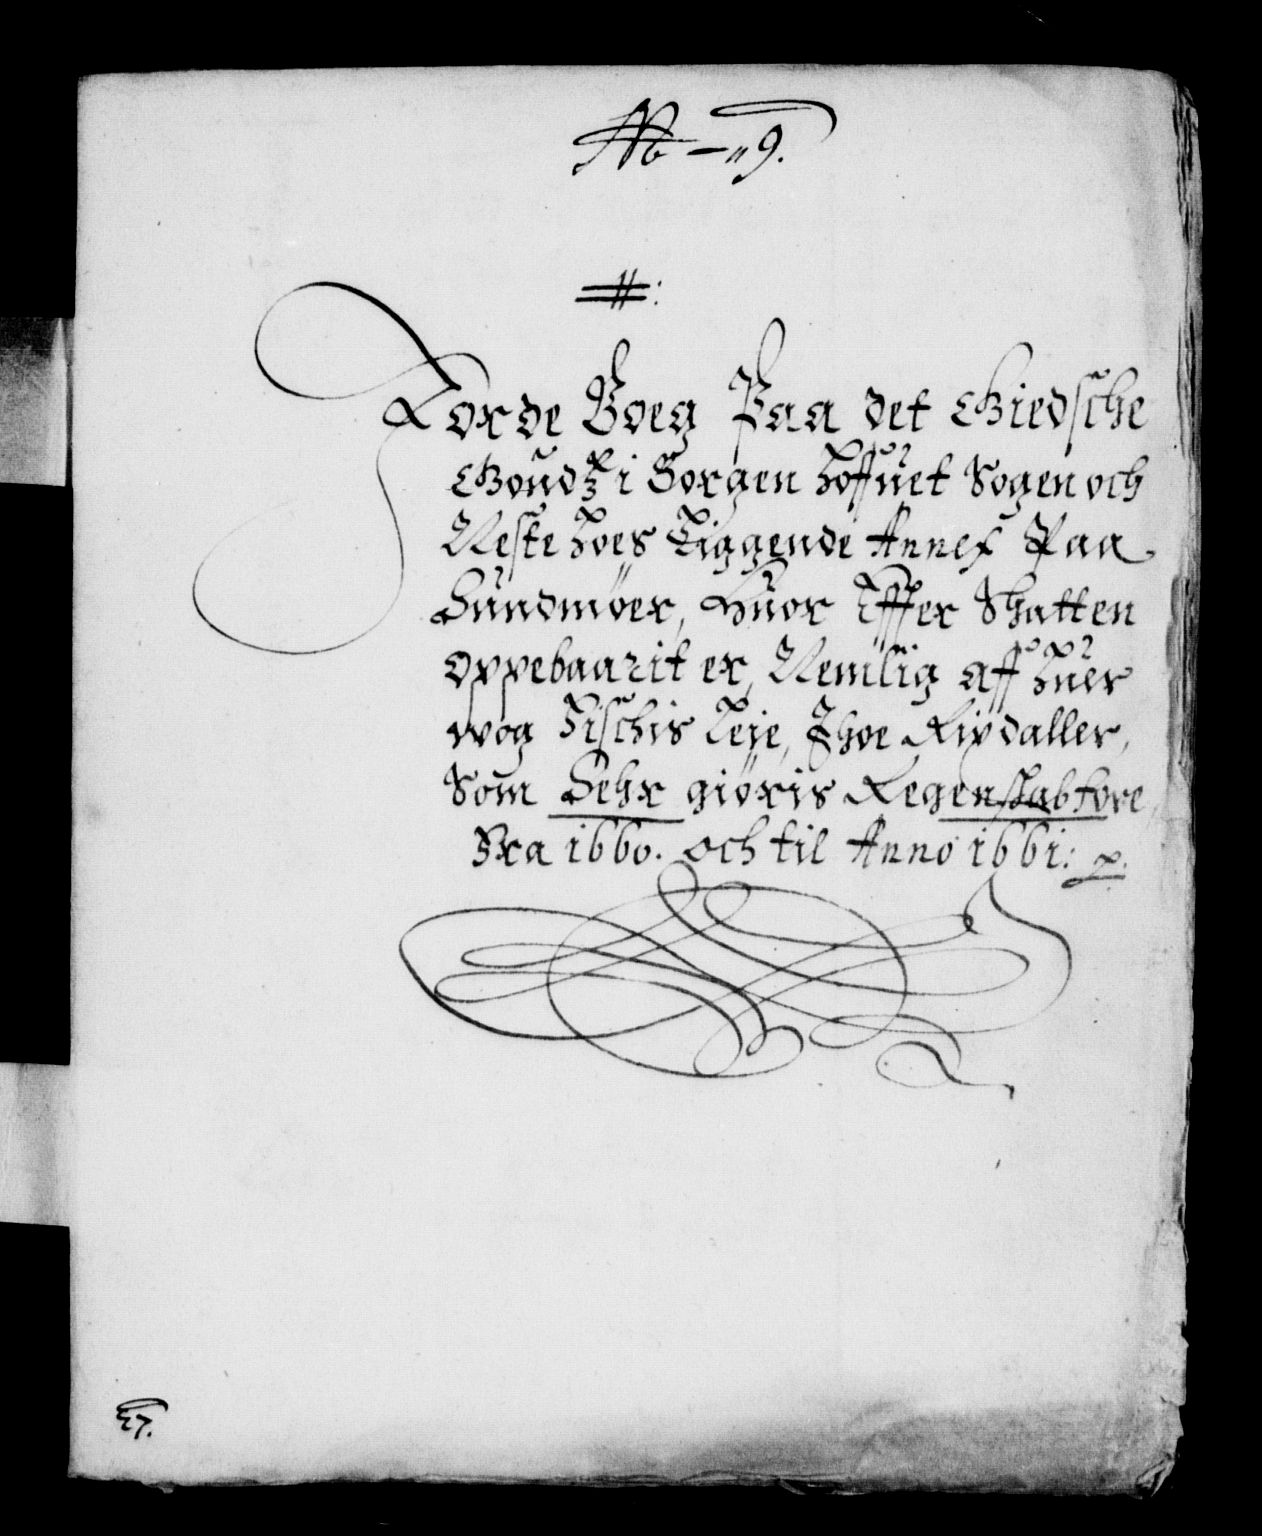 No - 9.
Jorde Boeg Paa det Giedsche
Goudtz i Borgen Hoffuet Sogen och
Neste Hoes Liggende Annex Paa
Sundmöer, Huor Effter Skatten
Oppebaarit er, Nemlig aff Huer
wog Fischis Leje, Thoe Rixdaller,
Som Hehr giöris Regenskab fore,
Fra 1660. och til Anno 1661: